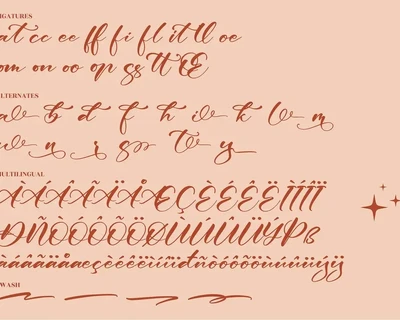 IGATURES
at cc ee ff fi fl it ll oe
om on oo op ss tt Œ
LTERNATES
a b d f h i k l m
u n r s t y
MULTILINGUAL
ÀÁÂÃÄÅÆÇÈÉÊËÌÍÎÏ
ÐÑÒÓÔÕÖØÙÚÛÜÝÞß
àáâãäåæçèéêëìíîïðñòóôõöùúûüýÿ
WASH